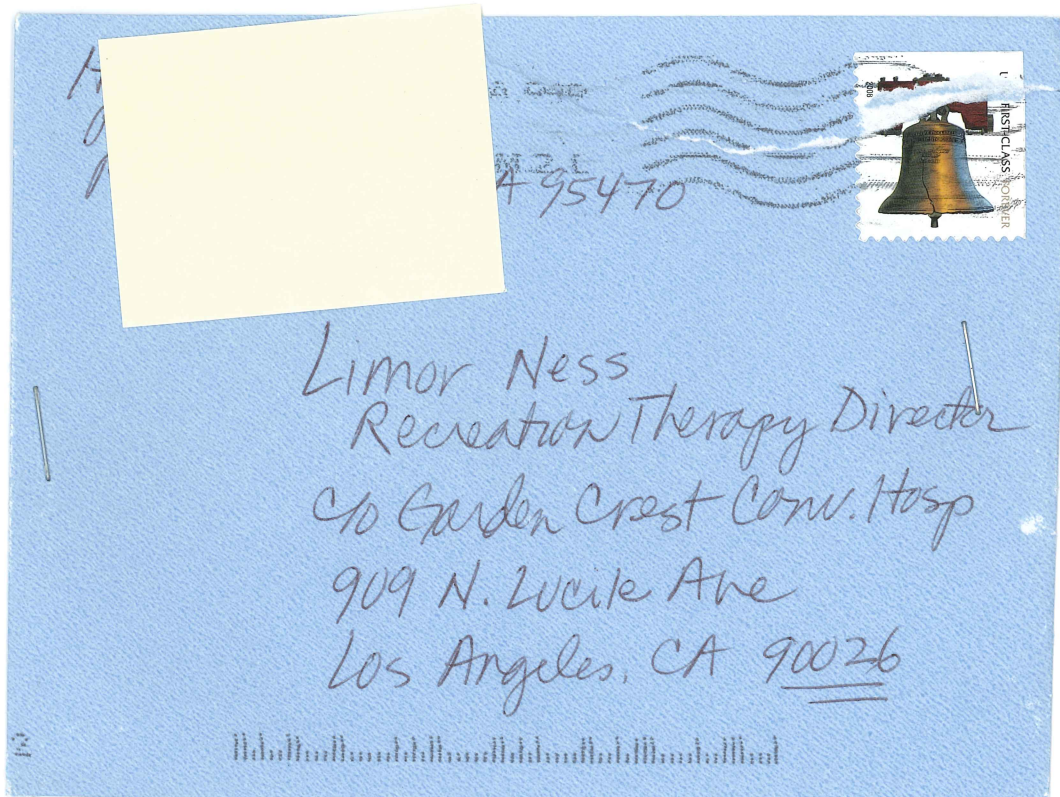 A 95470
2008
FIRST-CLASS FOREVER
Limor Ness
Recreation Therapy Director
c/o Garden Crest Conv. Hosp
909 N. Lucile Ave
Los Angeles, CA 90026